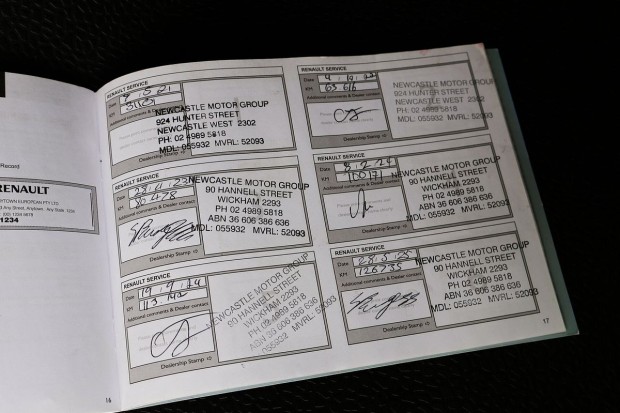 Record
RENAULT
RTOWN EUROPEAN PTY LTD
Any Street, Anytown - Any State 1234
1234
16
RENAULT SERVICE
Date
KM
Additional comments & Dealer contact
NEWCASTLE MOTOR GROUP
924 HUNTER STREET
NEWCASTLE WEST 2302
PH: 02 4989 5818
MDL: 055932 MVRL: 52093
Dealership Stamp
RENAULT SERVICE
Date
KM
Additional comments & Dealer contact
NEWCASTLE MOTOR GROUP
90 HANNELL STREET
WICKHAM 2293
PH 02 4989 5818
ABN 36 606 386 636
MDL: 055932 MVRL: 52093
Dealership Stamp
RENAULT SERVICE
Date 19 9 24
KM
Additional comments & Dealer contact
NEWCASTLE MOTOR GROUP
90 HANNELL STREET
WICKHAM 2293
PH 02 4989 5818
ABN 36 606 386 636
055932 MVRL: 52093
Dealership Stamp
RENAULT SERVICE
Date
KM
Additional comments & Dealer contact
NEWCASTLE MOTOR GROUP
924 HUNTER STREET
NEWCASTLE WEST 2302
PH: 02 4989 5818
MDL: 055932 MVRL: 52093
Dealership Stamp
RENAULT SERVICE
Date 8.2.24
KM 100171
Additional comments & Dealer contact
NEWCASTLE MOTOR GROUP
90 HANNELL STREET
WICKHAM 2293
PH 02 4989 5818
ABN 36 606 386 636
MDL: 055932 MVRL: 52093
Dealership Stamp
RENAULT SERVICE
Date 28.5.25
KM 126735
Additional comments & Dealer contact
NEWCASTLE MOTOR GROUP
90 HANNELL STREET
WICKHAM 2293
PH 02 4989 5818
ABN 36 606 386 636
MDL: 055932 MVRL: 52093
Dealership Stamp
17